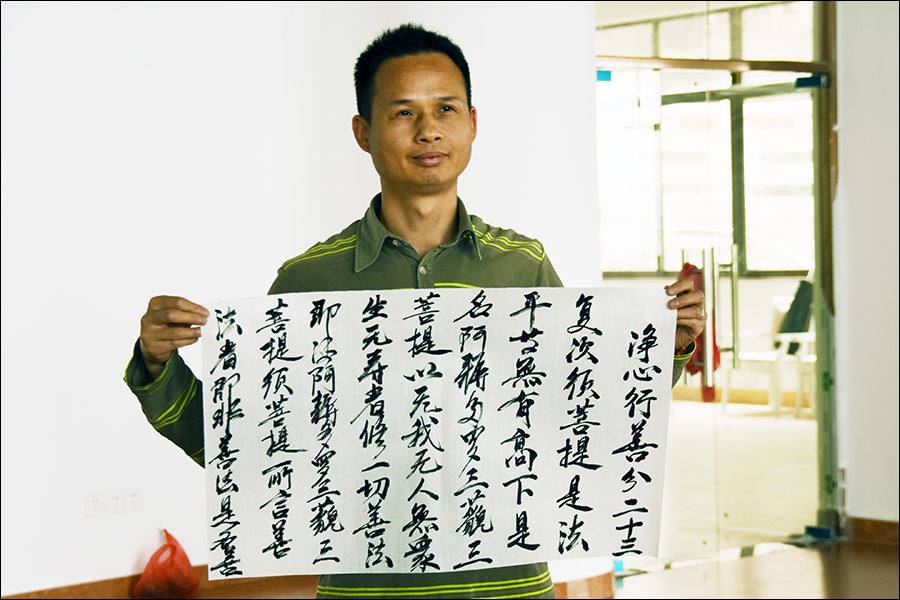 净心行善分二十三
复次须菩提是法
平等無有高下是
名阿耨多罗三藐三
菩提以无我无人無眾
生无寿者修一切善法
即法阿耨多罗三藐三
菩提须菩提所言善
法者即非善法是名善